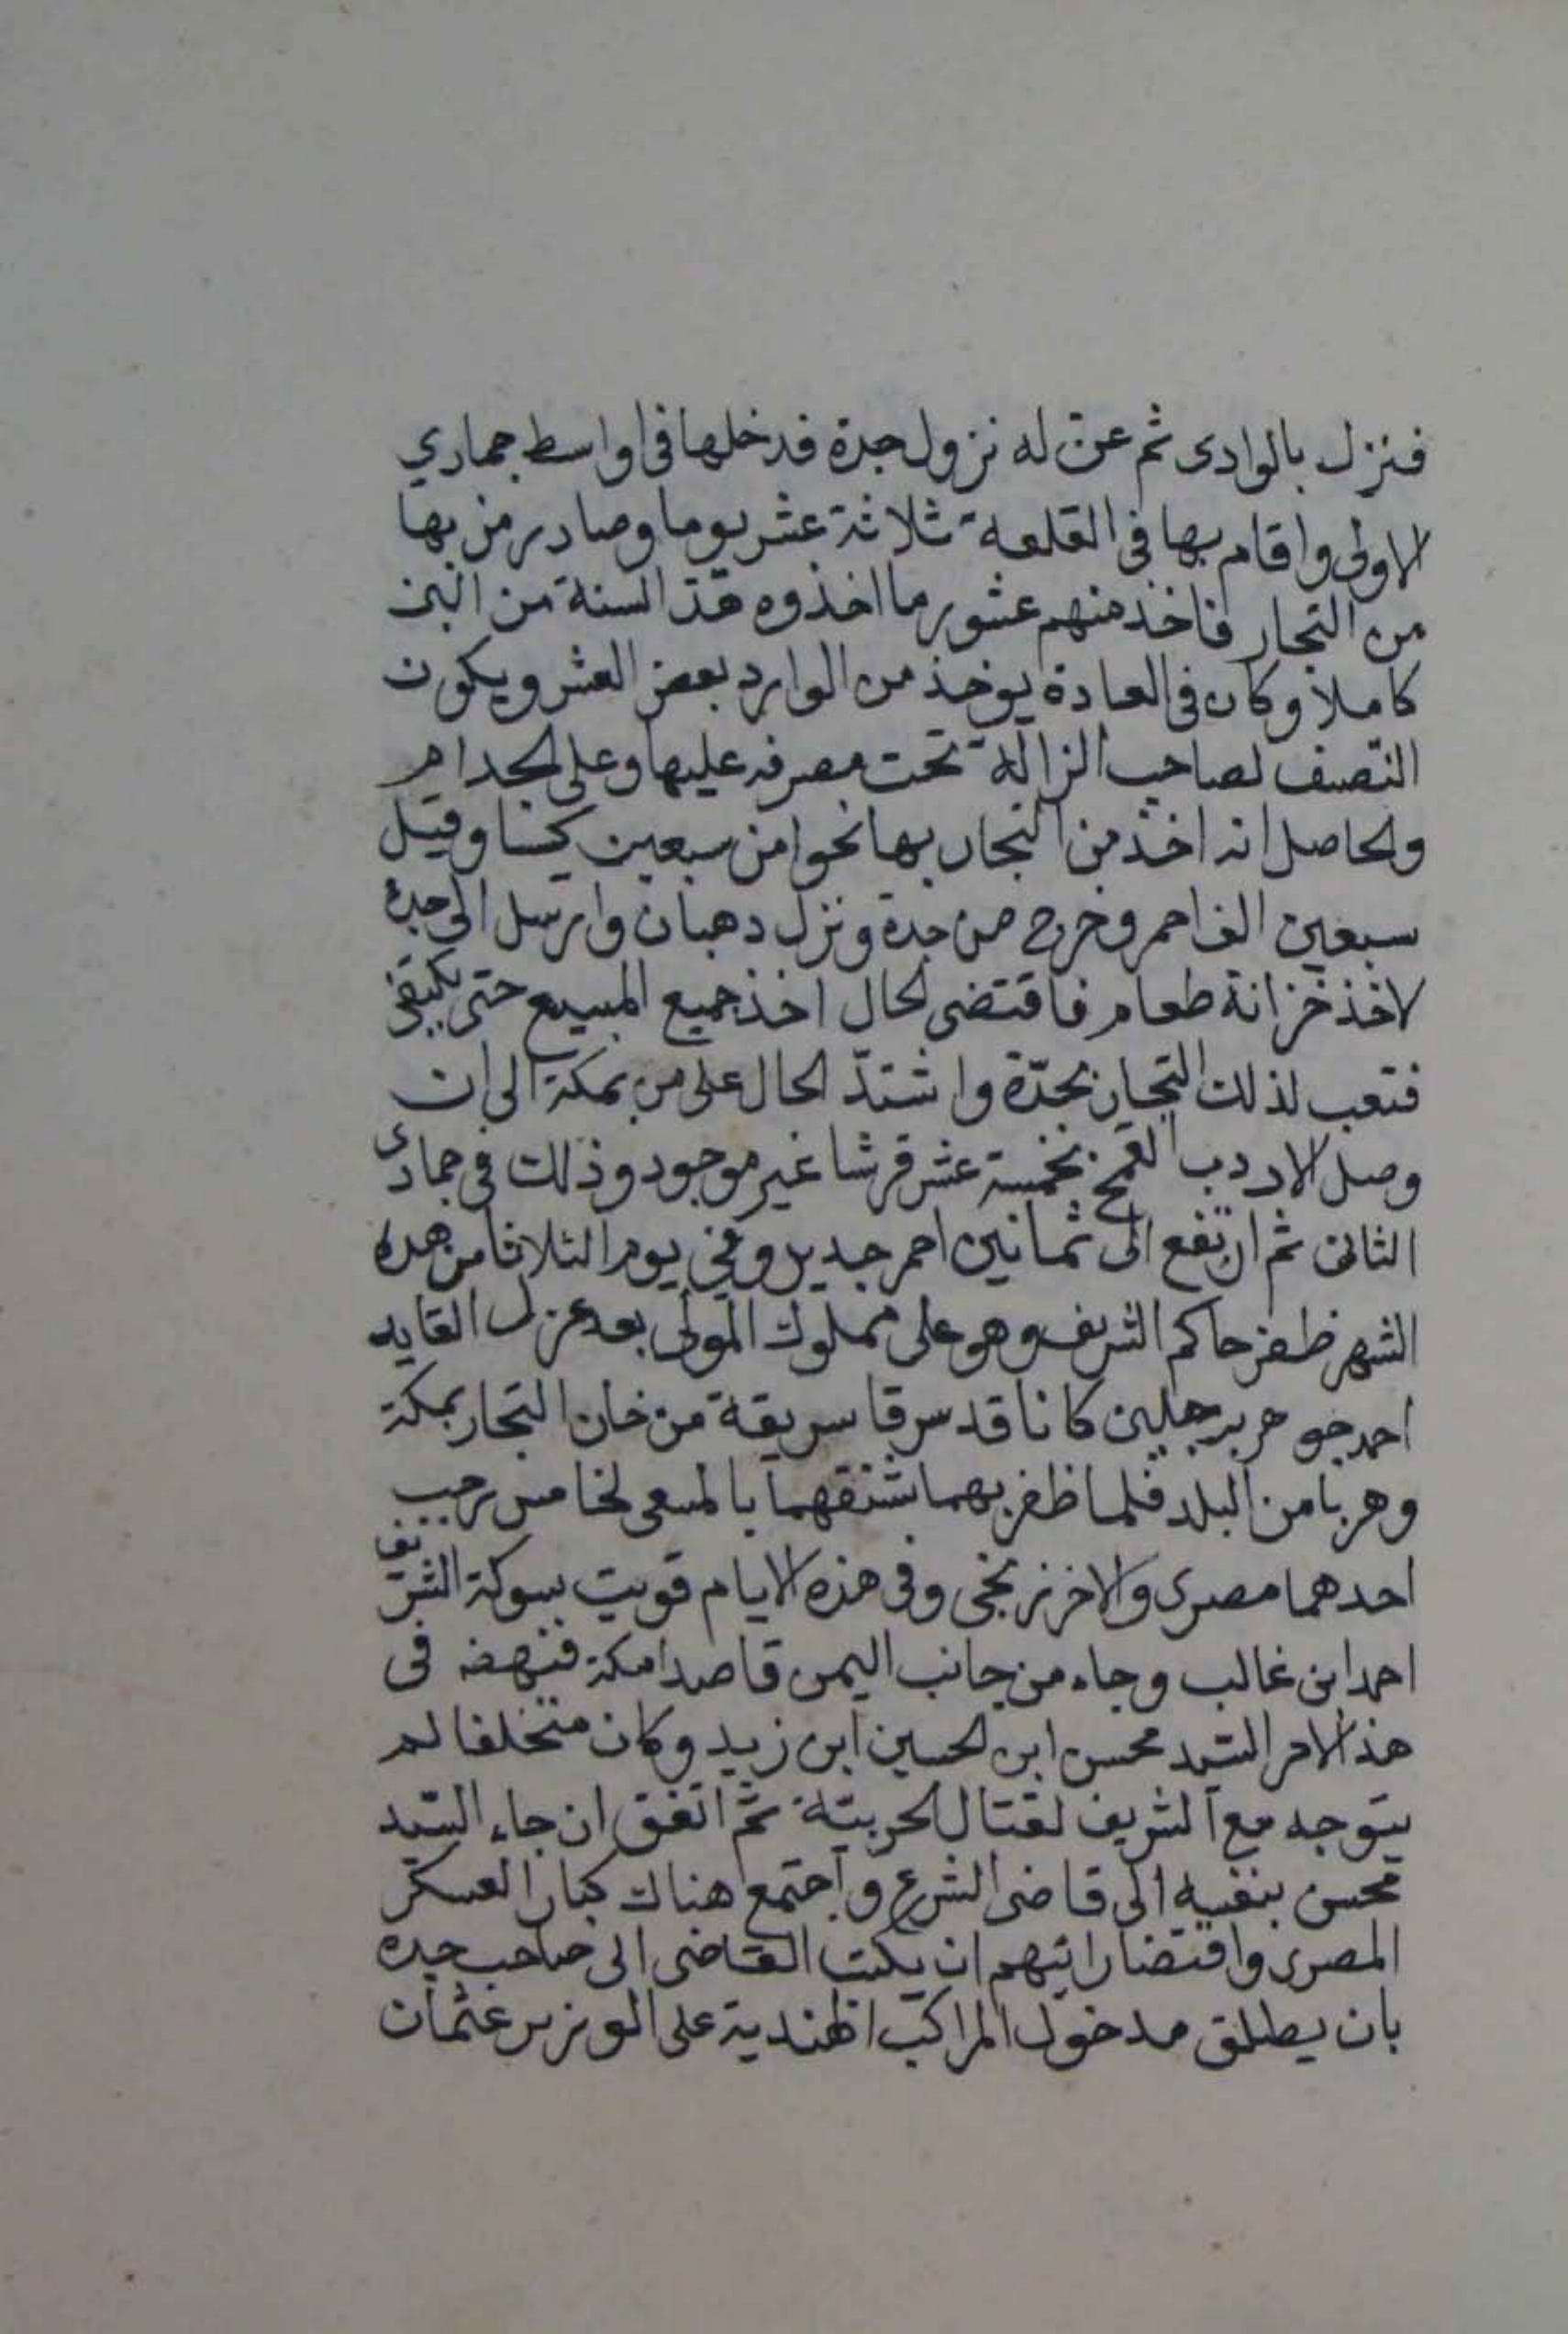 فنزل بالوادى ثم عن له نزول جدة فدخلها فى اواسط جمادي
الاولى واقام بها فى القلعة ثلاثة عشر يوما وصادر من بها
من التجار فاخذ منهم عشور ما اخذوه هذ السنة من البن
كاملا وكان فى العادة يوخذ من الوارد بعض العشر ويكون
النصف لصاحب الزالة تحت مصرفه عليها وعلى الجدام
والحاصل انه اخذ من التجار بها نحوا من سبعين كيسا وقيل
سبعين الف احمر وخرج من جدة ونزل دهبان وارسل الى جدة
لاخذ خزانة طعام فاقتضى الحال اخذ جميع المبيع حتى يكتفى
فتعب لذلك التجار بجدّة واشتدّ الحال على من بمكة الى ان
وصل الاردب القمح بخمسة عشر قرشا غير موجود وذلك فى جمادى
الثانى ثم ارتفع الى ثمانين احمر جديد وفي يوم الثلاثا من هده
الشهر ظفر حاكم الشريف وهو على مملوك المولى بعد عزل القايد
احمد جوهر برجلين كانا قد سرقا سريقة من خان التجار بمكة
وهربا من البلد فلما ظفر بهما شنقهما بالمسعى لخامس رجب
احدهما مصرى والاخر زنجى وفى هذه الايام قويت بسوكة الشريف
احمد ابن غالب وجاء من جانب اليمن قاصدا مكة فنهضه فى
هذ الامر السّيد محسن ابن الحسين ابن زيد وكان متخلفا لم
يتوجه مع الشريف لقتال الحربيّة ثم اتفق ان جاء السّيد
محسن بنفسه الى قاضى الشرع واجتمع هناك كبار العسكر
المصرى واقتضا رائيهم ان يكتب القاضى الى صاحب جده
بان يطلق مدخول المراكب الهندية على الوزير عثمان